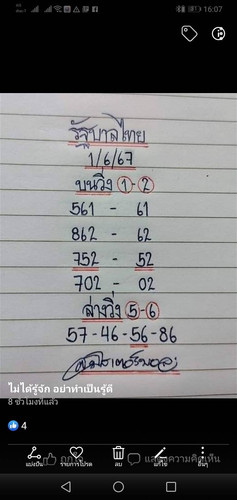 16:07
รัฐบาลไทย
1/6/67
บนวิ่ง 1-2
561 - 61
862 - 62
752 - 52
702 - 02
ล่างวิ่ง 5-6
57-46-56-86
ไม่ได้รู้จัก อย่าทำเป็นรู้ดี
8 ชั่วโมงที่แล้ว
4
แบ่งปัน รายการโปรด ลบ แก้ไข อื่นๆ
ถูกใจ แสดงความคิดเห็น